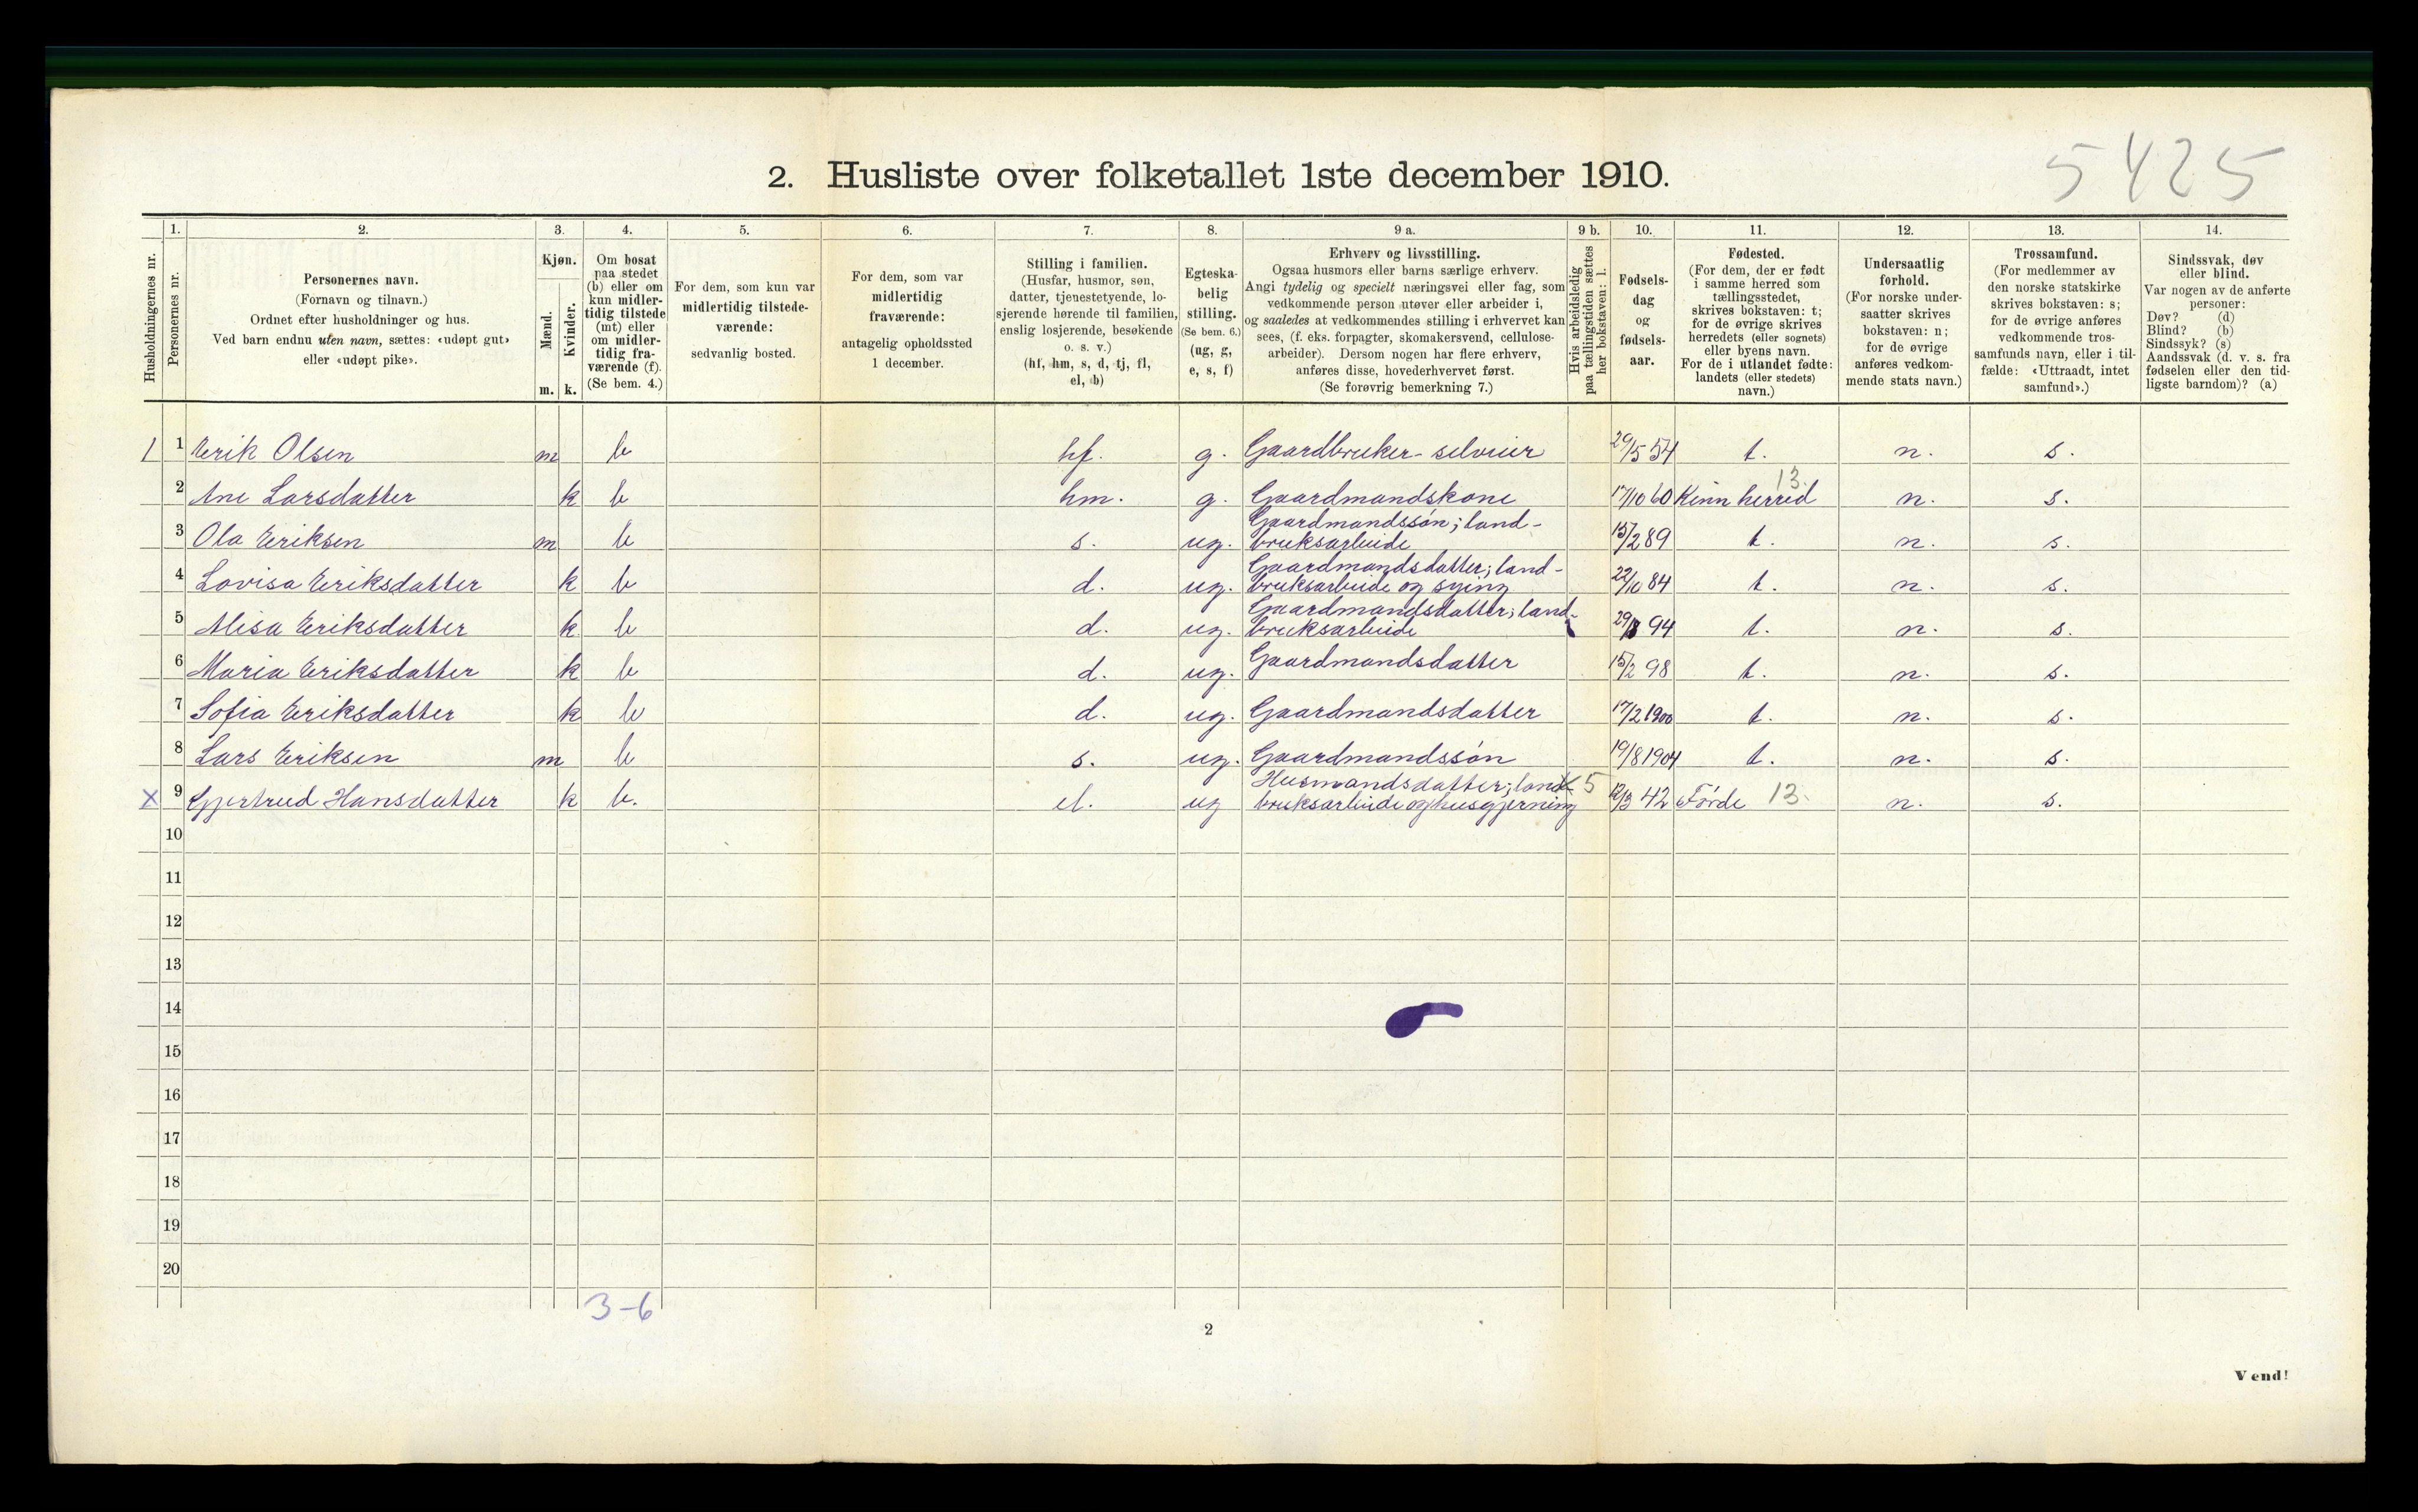 5425
2. Husliste over folketallet 1ste december 1910.
1. 2. 3. 4. 5. 6. 7. 8. 9 a. 9 b. 10. 11. 12. 13. 14.
Husholdningernes nr.
Personernes nr.
Personernes navn.
(Fornavn og tilnavn.)
Ordnet efter husholdninger og hus.
Ved barn endnu uten navn, sættes: «udøpt gut»
eller «udøpt pike».
Kjøn.
Mænd.
Kvinder.
m. k.
Om bosat
paa stedet
(b) eller om
kun midler-
tidig tilstede
(mt) eller
om midler-
tidig fra-
værende (f).
(Se bem. 4.)
For dem, som kun var
midlertidig tilstede-
værende:
sedvanlig bosted.
For dem, som var
midlertidig
fraværende:
antagelig opholdssted
1 december.
Stilling i familien.
(Husfar, husmor, søn,
datter, tjenestetyende, lo-
sjerende hørende til familien,
enslig losjerende, besøkende
o. s. v.)
(hf, hm, s, d, tj, fl,
el, b)
Egteska-
belig
stilling.
(Se bem. 6.)
(ug, g,
e, s, f)
Erhverv og livsstilling.
Ogsaa husmors eller barns særlige erhverv.
Angi tydelig og specielt næringsvei eller fag, som
vedkommende person utøver eller arbeider i,
og saaledes at vedkommendes stilling i erhvervet kan
sees, (f. eks. forpagter, skomakersvend, cellulose-
arbeider). Dersom nogen har flere erhverv,
anføres disse, hovederhvervet først.
(Se forøvrig bemerkning 7.)
Hvis arbeidsledig
paa tællingstiden sættes
her bokstaven: l.
Fødsels-
dag
og
fødsels-
aar.
Fødested.
(For dem, der er født
i samme herred som
tællingsstedet,
skrives bokstaven: t;
for de øvrige skrives
herredets (eller sognets)
eller byens navn.
For de i utlandet fødte:
landets (eller stedets)
navn.)
Undersaatlig
forhold.
(For norske under-
saatter skrives
bokstaven: n;
for de øvrige
anføres vedkom-
mende stats navn.)
Trossamfund.
(For medlemmer av
den norske statskirke
skrives bokstaven: s;
for de øvrige anføres
vedkommende tros-
samfunds navn, eller i til-
fælde: «Uttraadt, intet
samfund».)
Sindssvak, døv
eller blind.
Var nogen av de anførte
personer:
Døv? (d)
Blind? (b)
Sindssyk? (s)
Aandssvak (d. v. s. fra
fødselen eller den tid-
ligste barndom)? (a)
1 1 Erik Olsen m b hf. g. Gaardbruker - selveier 29/5 54 t. n. s.
13.
2 Ane Larsdatter k b hm. g. Gaardmandskone 17/10 60 Kinn herred n. s.
Gaardmandssøn; land-
3 Ola Eriksen m b s. ug. bruksarbeide 15/2 89 t. n. s.
Gaardmandsdatter; land-
4 Lovisa Eriksdatter k b d. ug. bruksarbeide og sying 22/10 84 t. n. s.
Gaardmandsdatter; land-
5 Alisa Eriksdatter k b d. ug. bruksarbeide 94 t. n. s.
6 Maria Eriksdatter k b d. ug. Gaardmandsdatter 15/2 98 t. n. s.
7 Sofia Eriksdatter k b d. ug. Gaardmandsdatter 17/2 1900 t. n. s.
8 Lars Eriksen m b s. ug. Gaardmandssøn 19/8 1904 t. n. s.
Husmandsdatter; land- 5
x 9 Gjertrud Hansdatter k b. el. ug bruksarbeide og husgjerning 12/3 42 Førde 13. n. s.
10
11
12
13
14
15
16
17
18
19
20
3-6
2
Vend!